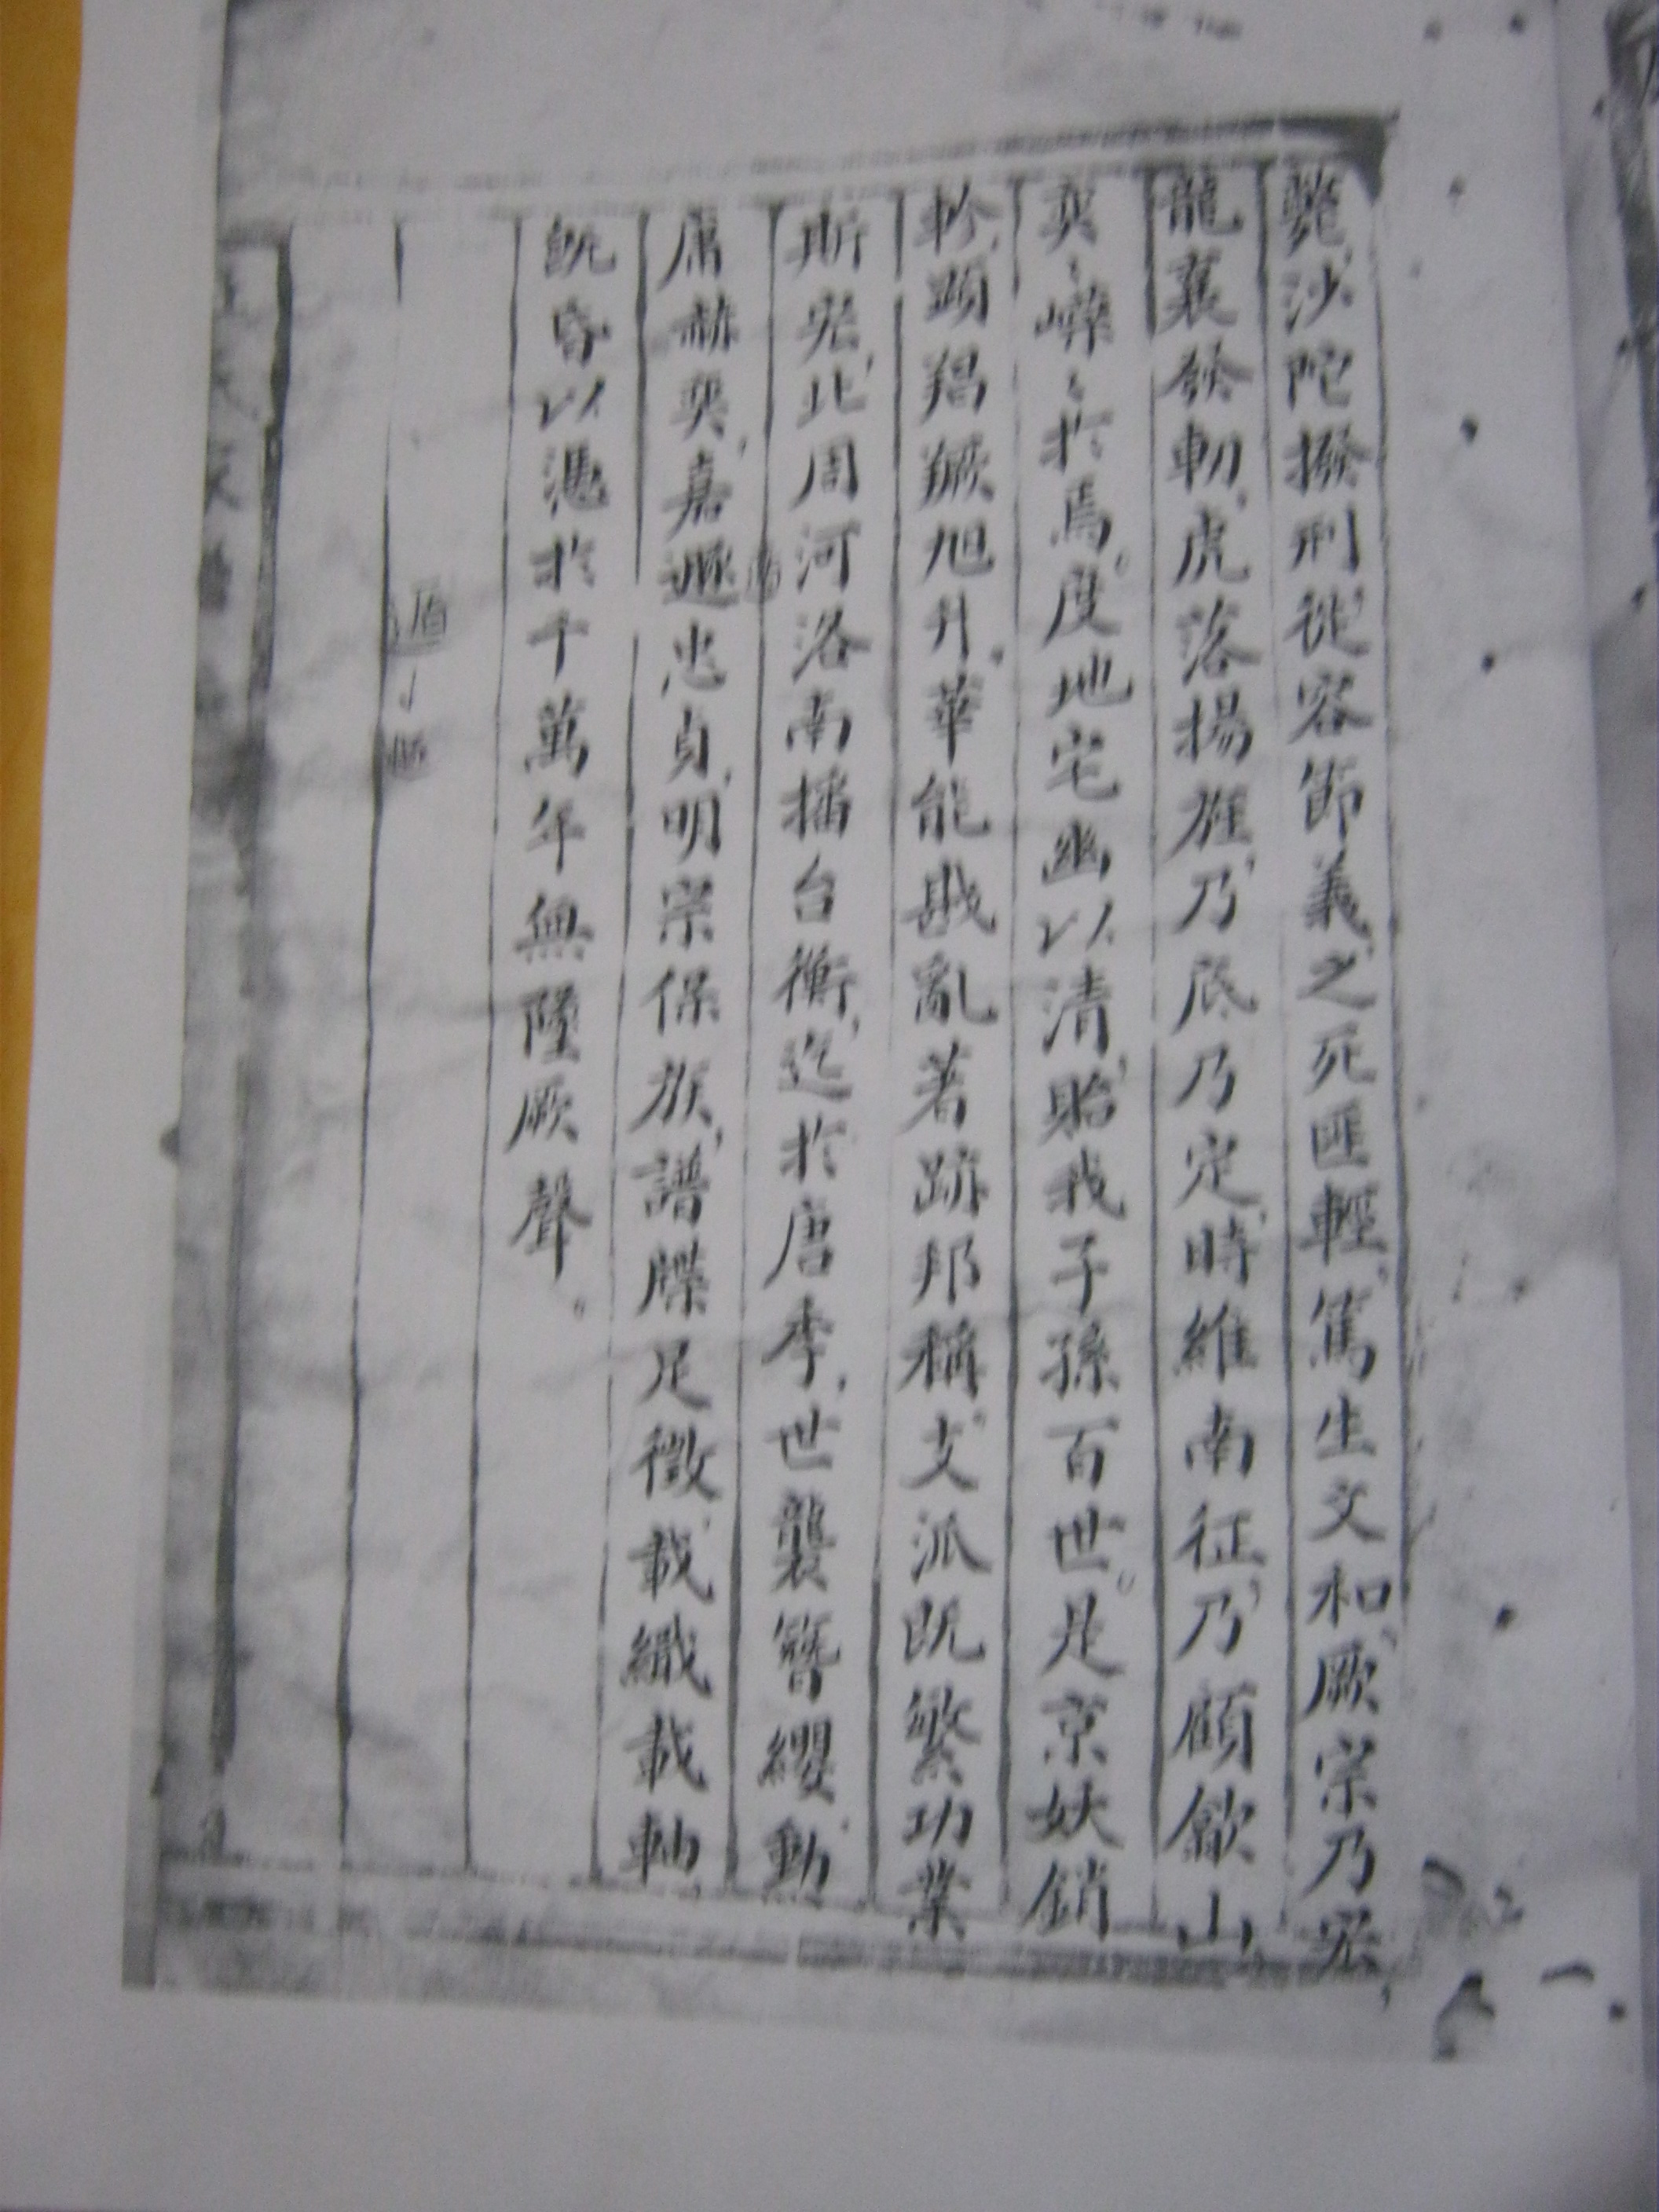 薨沙陀撥刑從容節義之死匪輕篤生文和厥宗乃宏,
龍襄發軔,虎落揚旌,乃底乃定,時維南征,乃顧歙山
奕〻嶸〻於焉。度地宅幽以清,貽我子孫百世。是京妖銷
軫,頭羯獗旭升。華能戡亂著跡邦稱,支派既繁功業
斯宏,北周河洛南播台衡,迄於唐季,世襲簪纓,勳
庸赫奕,嘉遯忠貞,明宗保族,譜牒足徵,載纖載軸,
既昏以憑於千萬年無墜厥聲。